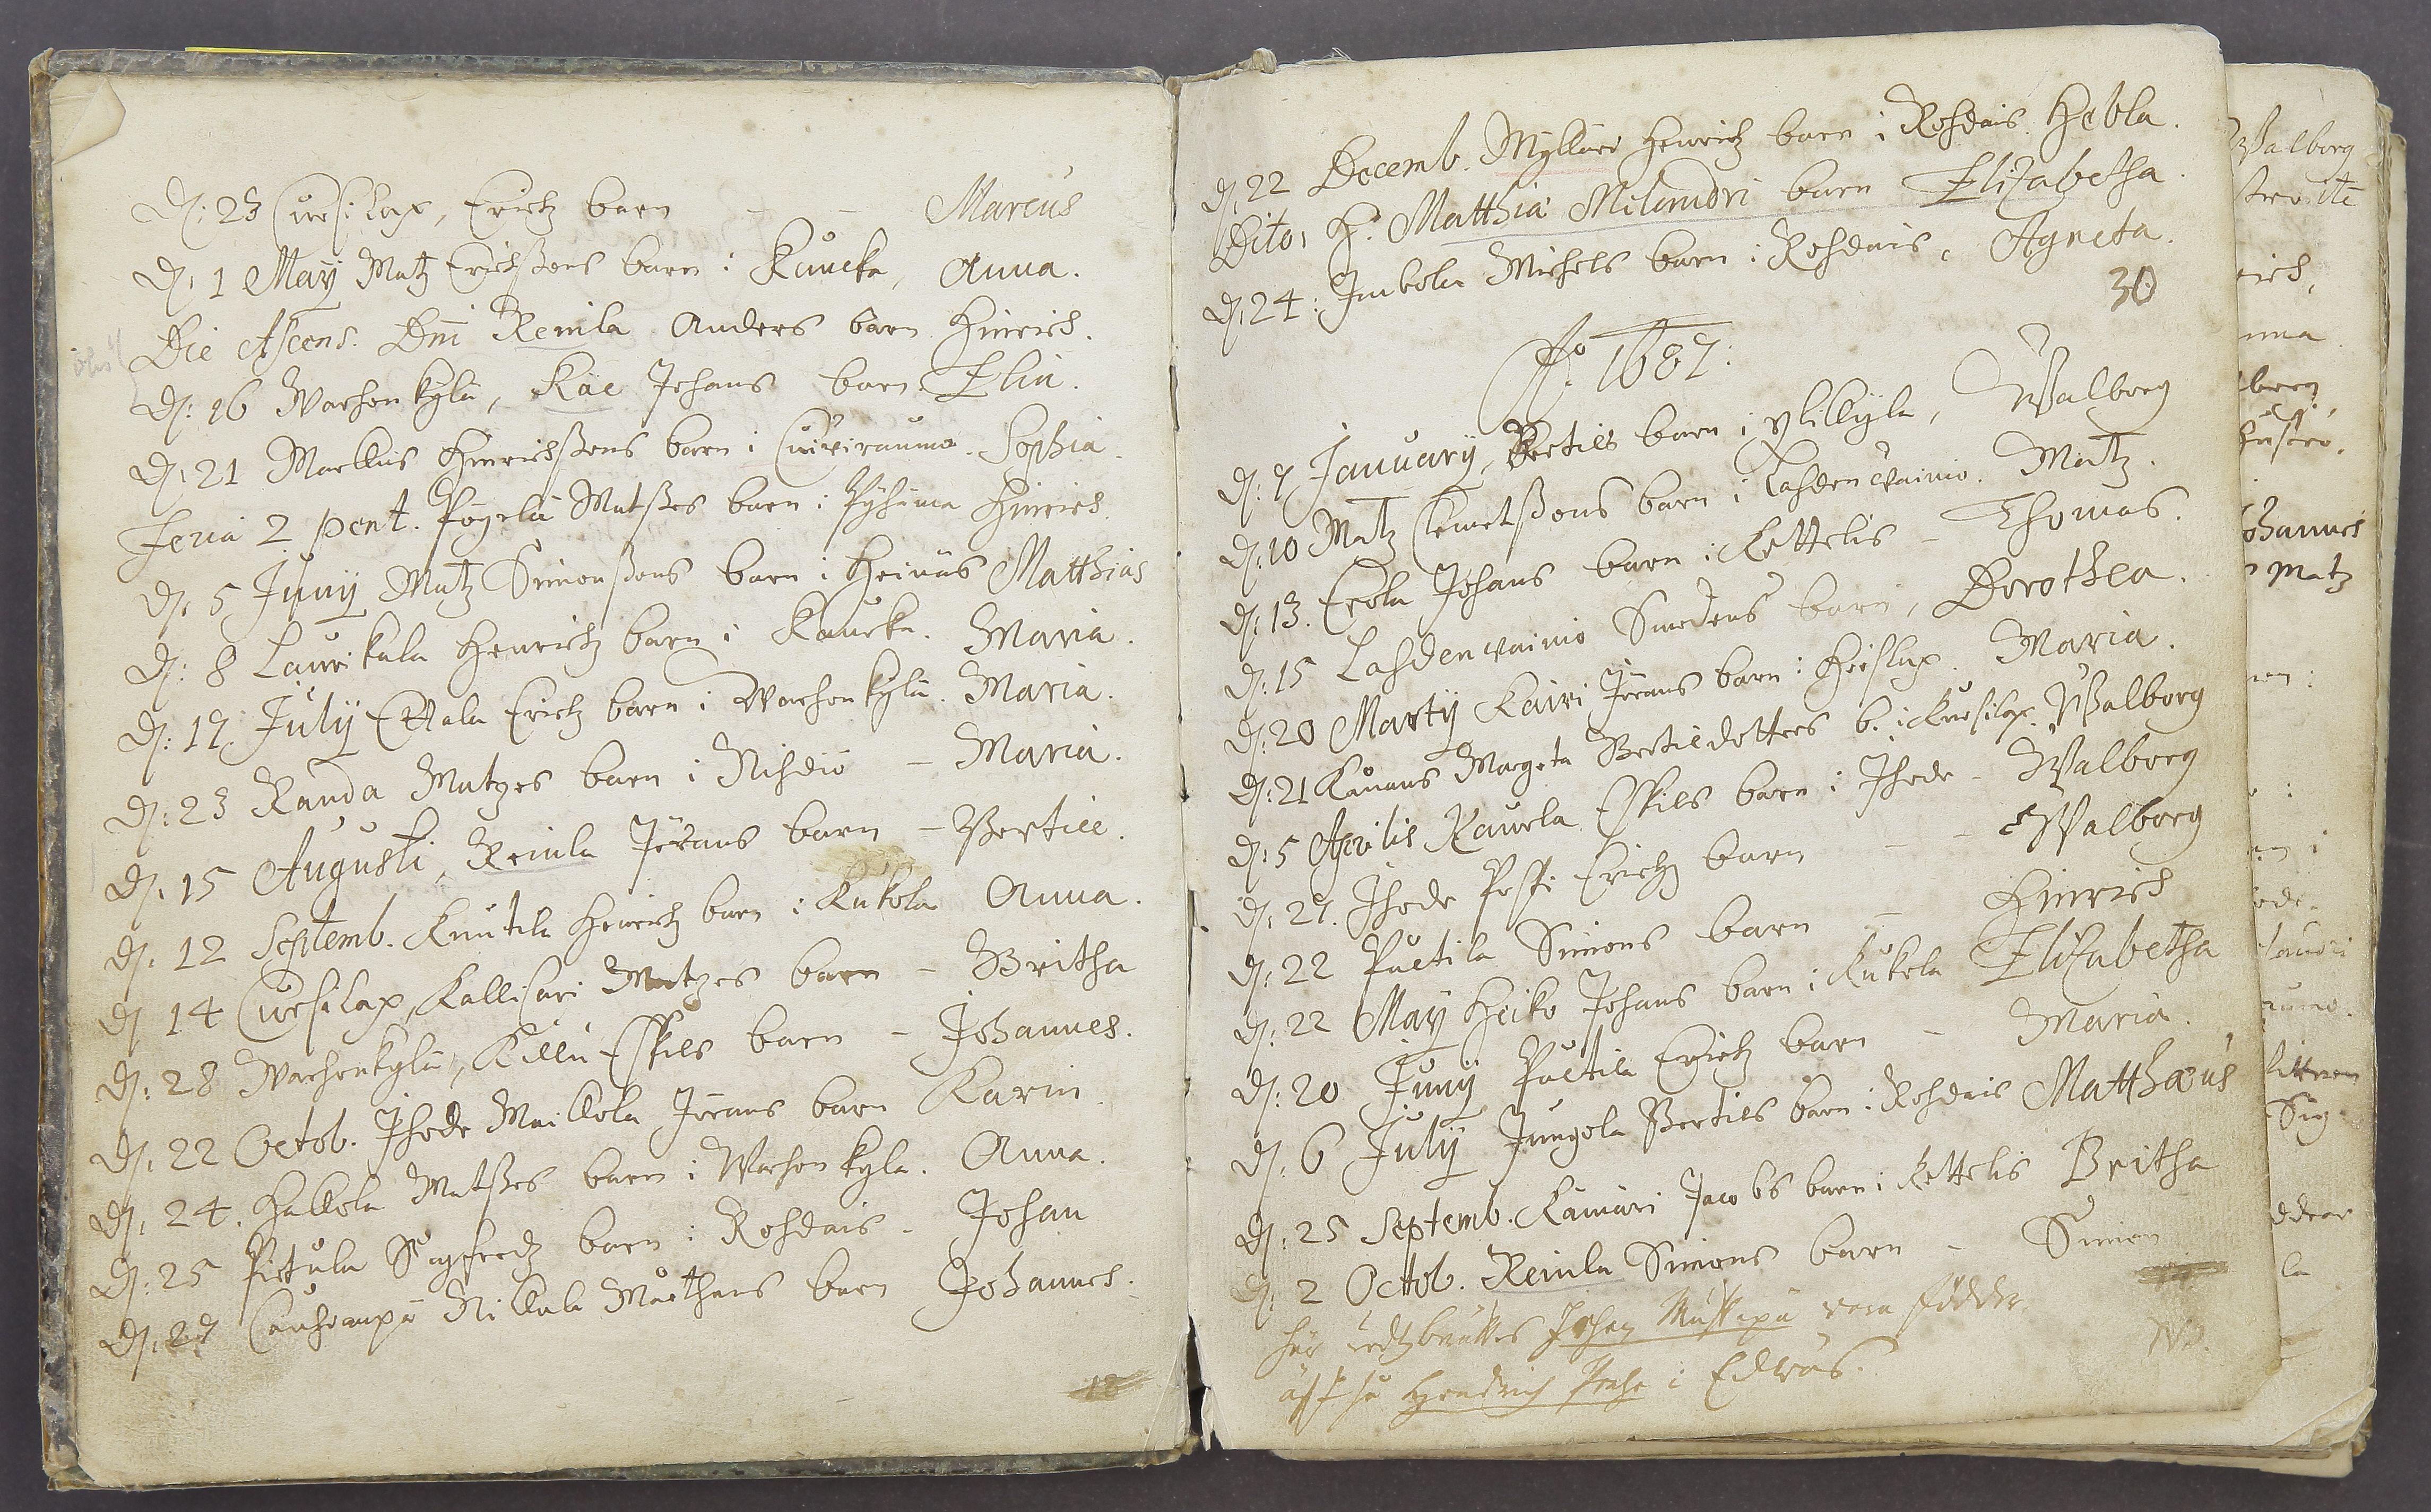 D: 23 Cursilax, Erichz barn - - Marcus
D: 1 Maÿ Matz Erichßons barn i Kaucka, Anna.
Die Ascens. Dnī Reinla Anders barn Hinrich.
D: 16 Warhenkÿlä, Käe Johans barn Elin.
D: 21 Markus Hinrichßons barn i Cuiviraumo. Sophia.
Feria 2 pent. Pöÿelä Matßes barn i Pÿhäma Hinrich.
D: 5 Junÿ Matz Simonßons barn i Heinäs Matthias
D: 8 Laurikala Henrichz barn i Kaucka. Maria.
D: 17 Julÿ Ettala Erichz barn i Warhenkÿlä. Maria.
D: 23 Randa Matzes barn i Nihdiö - Maria.
D. 15 Augusti, Reinla Jörans barn - Bertill.
D. 12 Septemb. Knutila Henrichz barn i Kukola Anna.
D 14 Cursilax, Kallisari Matzes barn - Britha
D: 28 Warhenkÿlä, Killu Eskils barn - Johannes.
D. 22 Octob. Ihode Maikkola Jörans barn Karin
D. 24. Hakkola Matßes barn i Warhenkÿla. Anna.
D: 25 Pietula Sigfredz barn i Rohdais - Johan
D. 27 Cauheanpä Nikkala Mårthens barn Johannes.
18
D. 22 Decemb. Mÿlläri Henrichz barn i Rohdais Hebla.
Dito, H. Matthiæ Milandri barn Elisabetha.
D. 24: Imbola Michels barn i Rohdais, Agneta.
30
Aō 1687:
D: 7 Januarÿ, Bertils barn i ÿlikÿla, Walborg
D: 10 Matz Clemetßons barn i Lahdenvainio. Matz.
D: 13. Erola Johans barn i Kettelis - Thomas.
D: 15 Lahdenvainio Smedens barn, Dorothea.
D: 20 Martÿ Kairi Jörans barn i Heislax. Maria.
D: 21 Kånans Margeta Bertilsdotters b. i Kursilax. Walborg
D: 5 Aprilis Kaurla Eskils barn i Ihode - Walborg
D. 27. Ihode Posti Erichz barn - - Walborg
D: 22 Puctila Simons barn - Hinrich
D: 22 Maÿ Heiko Johans barn i Kukola Elisabetha
D: 20 Junÿ Puctila Erichz barn - Maria.
D. 6 Julÿ Jungola Bertils barn i Rohdais Matthæus
D: 25 Septemb. Kämäri Jacobs barn i Kettelis Britha
D: 2 Octob. Reinla Simons barn - Simon
här Johan vara födder
Hendrich i Edväs.
Walborg
rich,
nna
Johannes
Matz
landri
Sig
la